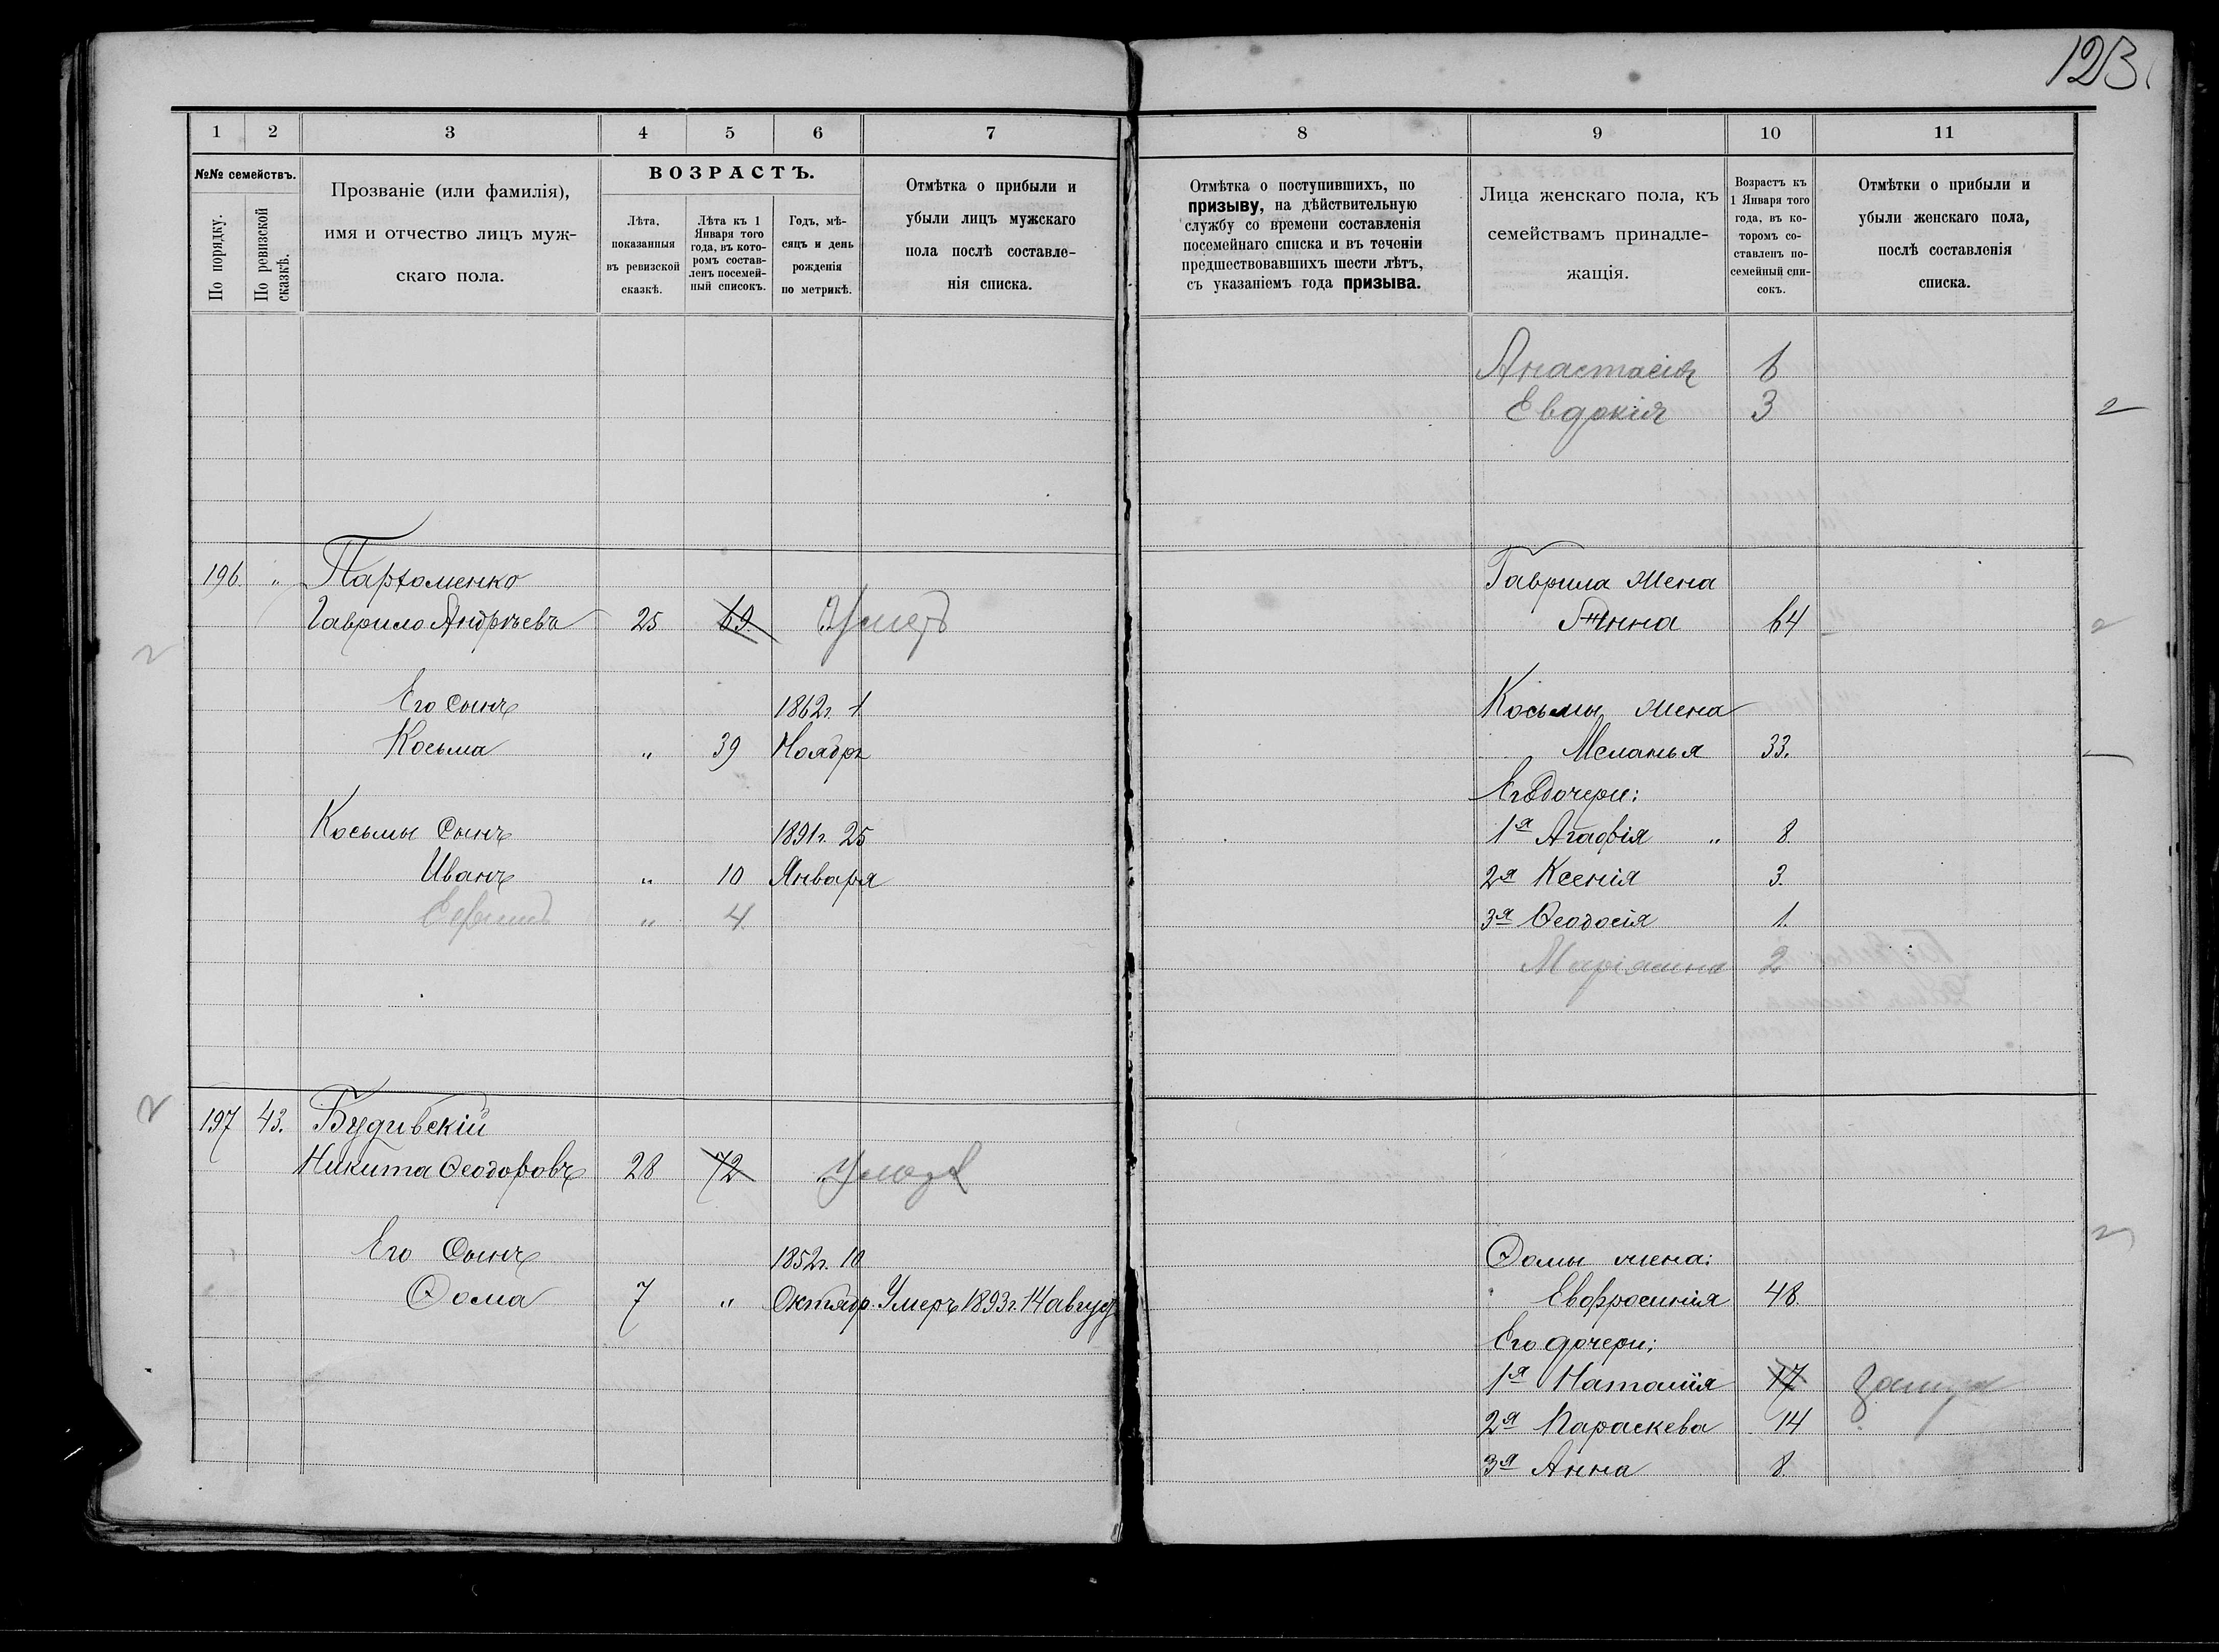 123
1 2 3 4 5 6 7
№№ семействъ.
По порядку.
По ревизской сказкѣ.
Прозваніе (или фамилія),
имя и отчество лицъ муж-
скаго пола.
ВОЗРАСТЪ.
Лѣта,
показанныя
въ ревизской
сказкѣ.
Лѣта къ 1
Января того
года, въ кото-
ромъ состав-
ленъ посемей-
ный списокъ.
Годъ, мѣ-
сяцъ и день
рожденія
по метрикѣ.
Отмѣтка о прибыли и
убыли лицъ мужскаго
пола послѣ составле-
нія списка.
196. " Пархоменко
Гаврило Андрѣевъ 25 69 Умеръ
Его сынъ 1862г. 1
Косьма " 39 Ноябрь
Косьмы сынъ 1891г. 25
Иванъ " 10 Января
" 4
197 43. Будивскій
Никита Ѳеодоровъ 28 72 Умеръ
Его сынъ 1852г. 10
Ѳома 7 " Октябр. Умеръ 1893г. 14 август
8 9 10 11
Отмѣтка о поступившихъ, по
призыву, на дѣйствительную
службу со времени составленія
посемейнаго списка и въ теченіи
предшествовавшихъ шести лѣтъ,
съ указаніемъ года призыва.
Лица женскаго пола, къ
семействамъ принадле-
жащія.
Возрастъ къ
1 Января того
года, въ ко-
торомъ со-
ставленъ по-
семейный спи-
сокъ.
Отмѣтки о прибыли и
убыли женскаго пола,
послѣ составленія
списка.
Анастасія 6
Евдокія 3 2
Гаврила жена
Анна 64 2
Косьмы жена
Меланья 33.
Его дочери:
1я Агафія " 8.
2я Ксенія 3.
3я Ѳеодосія 1.
Маріанна 2
Ѳомы жена:
Евфросинія 48.
Его дочери:
1я Наталія 17
2я Параскева 14
3я Анна 8.